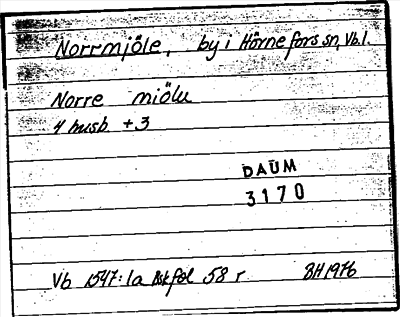 Norrmjöle, by i Hörnefors sn, Vb.l.
Norre miölu
4 husb. +3
DAUM
3170
Vb 1547:1a Bskfol 58 r BH 1976